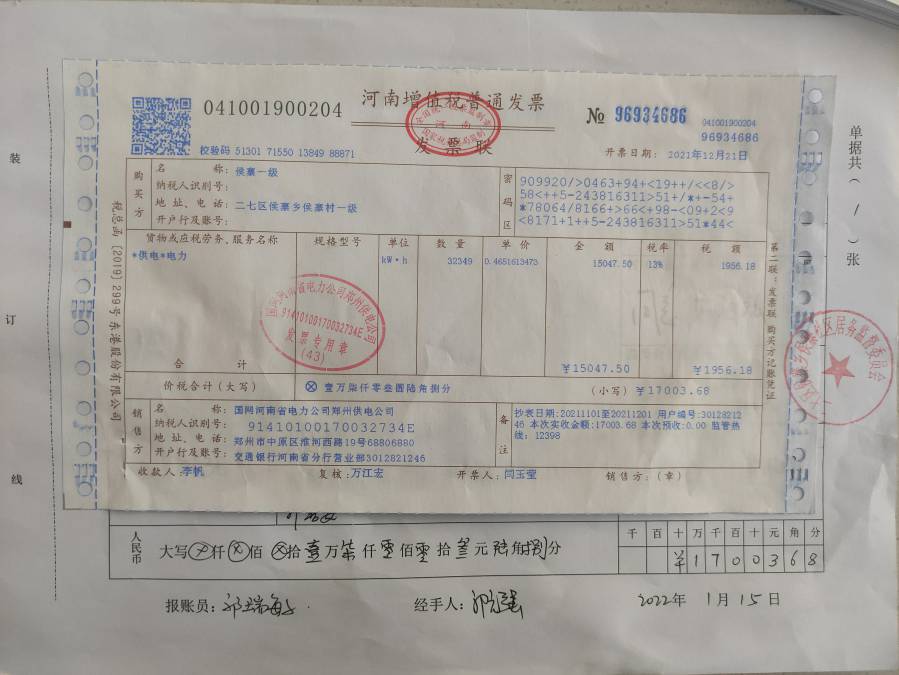 河南增值税普通发票
发票联
041001900204
№ 96934686
041001900204
96934686
校验码 51301 71550 13849 88871
开票日期： 2021年12月21日
购买方
名 称： 侯寨一级
纳税人识别号：
地 址、电 话： 二七区侯寨乡侯寨村一级
开户行及账号：
密码区
909920/>0463+94+<19++/<<8/>
58<++5-243816311>51+/*+-54+
*78064/8166+>66<+98-<09+2<9
<8171+1++5-243816311>51*44<
货物或应税劳务、服务名称 规格型号 单位 数 量 单 价 金 额 税率 税 额
*供电*电力 kW·h 32349 0.4651613473 15047.50 13% 1956.18
合 计 ￥15047.50 ￥1956.18
价税合计（大写） ⊗ 壹万柒仟零叁圆陆角捌分 （小写）￥17003.68
销售方
名 称： 国网河南省电力公司郑州供电公司
纳税人识别号： 91410100170032734E
地 址、电 话： 郑州市中原区淮河西路19号68806880
开户行及账号： 交通银行河南省分行营业部3012821246
备注
抄表日期:20211101至20211201 用户编号:30128212
46 本次实收金额:17003.68 本次预收:0.00 监管热
线: 12398
收款人：李帆 复核：万江宏 开票人：闫玉莹 销售方：（章）
税总函〔2019〕299号东港股份有限公司
第二联：发票联 购买方记账凭证
国网河南省电力公司郑州供电公司
91410100170032734E
发票专用章
(43)
装
订
线
单据共（1）张
人民币
大写⊗仟⊗佰⊗拾壹万柒仟零佰零拾叁元陆角捌分
千 百 十 万 千 百 十 元 角 分
￥ 1 7 0 0 3 6 8
报账员：
经手人：
2022年 1月15日